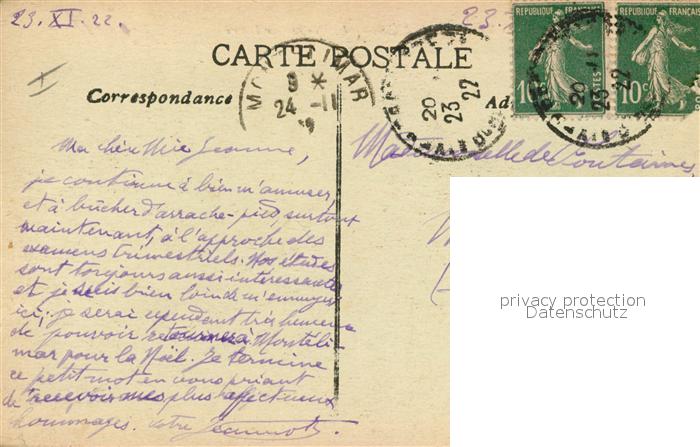 23.XI.22.
23.
CARTE POSTALE
RÉPUBLIQUE FRANÇAISE
POSTES
10c
RÉPUBLIQUE FRANÇAISE
10c
MONTELIMAR
9 *
24 -11
20
23
22
20
23
22
Correspondance
Ad
Ma chère Mie Jeanne,
je continue à bien m'amuser,
et à bûcher d'arrache-pied surtout
maintenant, à l'approche des
examens trimestriels. Nos études
sont toujours aussi intéressantes
et je suis bien loin de m'ennuyer
ici; je serai cependant très heureux
de pouvoir retourner à Montéli-
mar pour la Noël. Je termine
ce petit mot en vous priant
de recevoir mes plus affectueux
hommages. Votre Jeannot.
Mademoiselle de Fontaines
privacy protection
Datenschutz